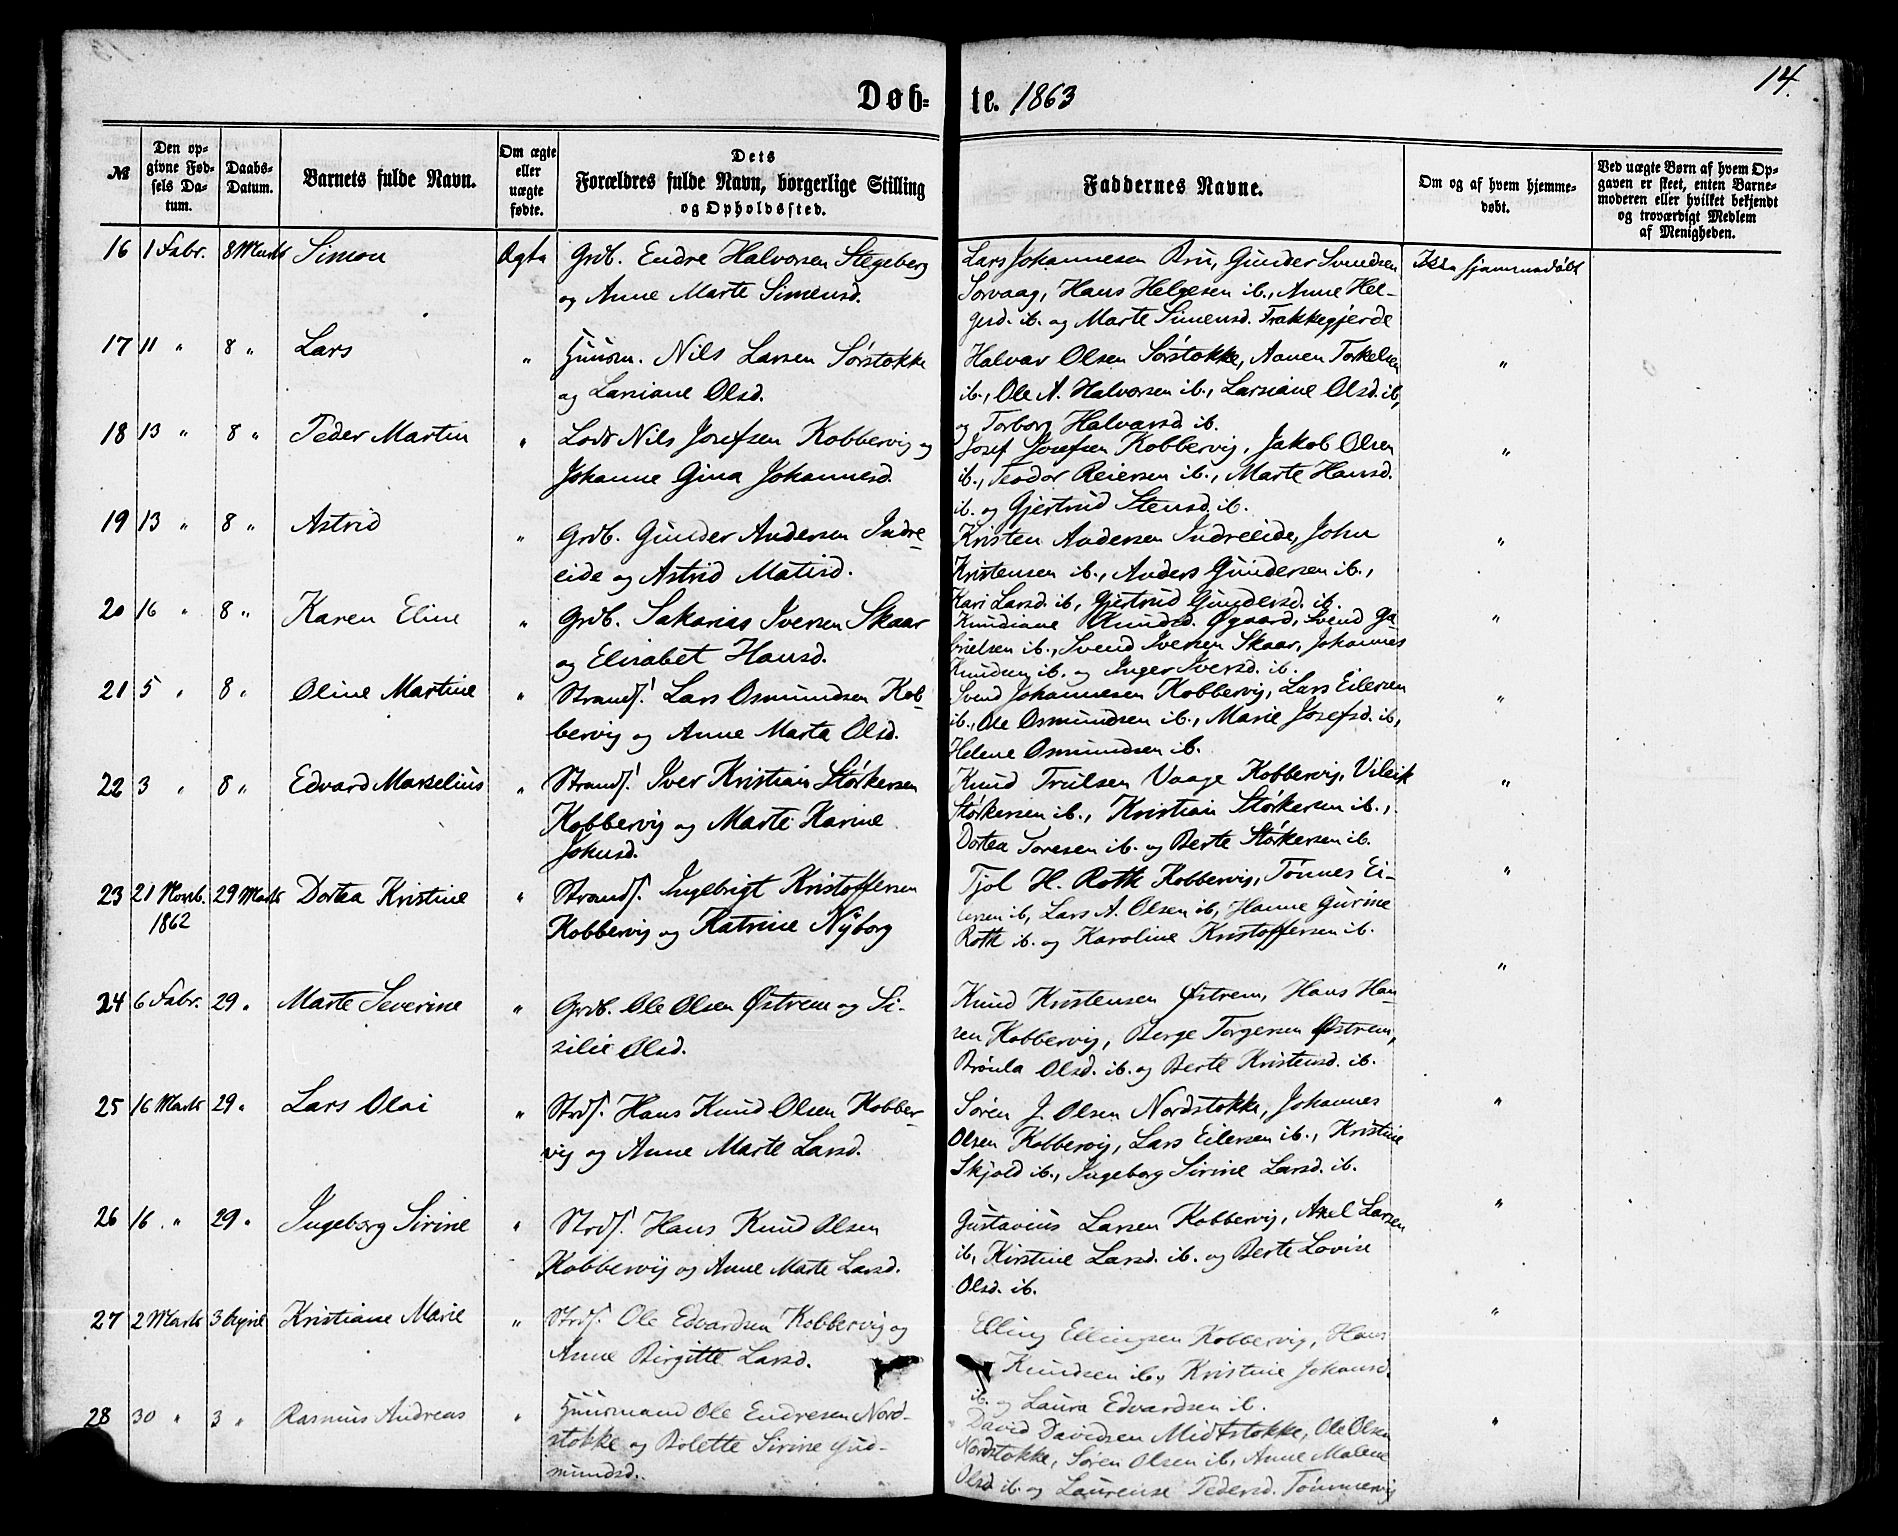 14.
Døb- te. 1863
№
Den op-
givne Fød-
sels Da-
tum.
Daabs-
Datum.
Barnets fulde Navn.
Om ægte
eller
uægte
fødte.
Dets
Forældres fulde Navn, borgerlige Stilling
og Opholdssted.
Faddernes Navne.
Om og af hvem hjemme-
døbt.
Ved uægte Børn af hvem Op-
gaven er skeet, enten Barne-
moderen eller hvilket bekjendt
og troværdigt Medlem
af Menigheden.
16 1 Febr. 8 Marts Simon Ægte Grdb. Endre Halvorsen Stegeberg
og Anne Marte Simensd.
Lars Johannesen Bru, Gunder Svendsen
Sørvaag, Hans Helgesen ib., Anne Hel-
gesd. ib. og Marte Simensd. Trakkegjerde
Ikke hjemmedöbt
17 11 " 8 " Lars " Huusm. Nils Larsen Sørstokke
og Larsiane Olsd.
Halvar Olsen Sørstokke, Aanen Torkelsen
ib., Ole A. Halvorsen ib., Larsiane Olsd. ib,
og Torborg Halvarsd ib.
"
18 13 " 8 " Peder Martin " Lods Nils Josefsen Kobbervig og
Johanne Gina Johannesd.
Josef Josefsen Kobbervig, Jakob Olsen
ib., Teodor Reiersen ib., Marte Hansd.
ib. og Gjertrud Stensd. ib.
"
19 13 " 8 " Astrid " Grdb. Gunder Andersen Indre-
eide og Astrid Matisd.
Kristen Andersen Indreeide, John
Kristensen ib., Anders Gundersen ib.,
Kari Larsd. ib, Gjertrud Gundersd. ib.
"
20 16 " 8 " Karen Eline " Grdb. Sakarias Iversen Skaar
og Elisabet Hansd.
Knudiane Knudsd. Øgaard, Svend Ga-
brielsen ib., Svend Iversen Skaar, Johannes
Knudsen ib. og Inger Iversd. ib.
"
21 5 " 8 " Oline Martine " Strands. Lars Osmundsen Kob-
bervig og Anne Marta Olsd.
Svend Johannesen Kobbervig, Lars Eilersen
ib., Ole Osmundsen ib., Marie Josefsd. ib,
Helene Osmundsen ib.
"
22 3 " 8 " Edvard Marselius " Strands. Iver Kristian Størkersen
Kobbervig og Marte Karine
Johnsd.
Knud Trulsen Vaage Kobbervig, Vileik
Størkersen ib., Kristian Størkersen ib.,
Dortea Toresen ib. og Berte Størkersen ib.
"
23 21 Novb. 29 Marts Dortea Kristine " Strands. Ingebrigt Kristoffersen
1862
Kobbervig og Katrine Nyborg
Tjøl H. Roth Kobbervig, Tönnes Ei-
lersen ib, Lars A. Olsen ib, Hanne Gurine
Roth ib. og Karoline Kristoffersen ib.
"
24 6 Febr. 29 " Marte Severine " Grdb. Ole Olsen Østrem og Si-
silie Olsd.
Knud Kristensen Østrem, Hans Han-
sen Kobbervig, Børge Torgersen Østrem,
Brönla Olsd. ib. og Berte Kristensd. ib.
"
25 16 Marts 29 " Lars Olai " Strds. Hans Knud Olsen Kobber-
vig og Anne Marte Larsd.
Søren J. Olsen Nordstokke, Johannes
Olsen Kobbervig, Lars Eilersen ib., Kristine
Skjold ib., Ingeborg Sirine Larsd. ib.
"
26 16 " 29 " Ingeborg Sirine " Strds. Hans Knud Olsen
Kobbervig og Anne Marte Larsd.
Gustavius Larsen Kobbervig, Axel Larsen
ib, Kirstine Larsd. ib. og Berte Lovise
Olsd. ib.
"
27 2 Marts 3 April Kristiane Marie " Strds. Ole Edvardsen Kobbervig og
Anne Birgitte Larsd.
Elling Ellingsen Kobbervig, Hans
Knudsen ib., Kristine Johansd.
ib. og Laura Edvardsen ib.
"
28 30 " 3 " Rasmus Andreas " Huusmand Ole Endresen Nord-
stokke og Bolette Sirine Gud-
mundsd.
David Davidsen Midtstokke, Ole Olsen
Nordstokke, Søren Olsen ib, Anne Malene
Olsd ib. og Laurense Pedersd. Tömmervig
"